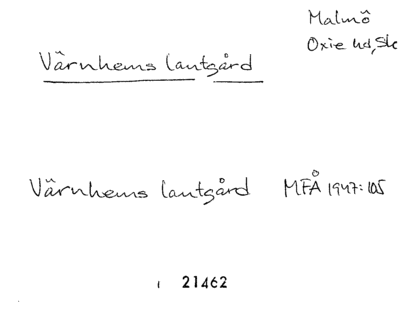 Malmö
Oxie hd, Sk
Värnhems lantgård
Värnhems lantgård MFÅ 1947:105
21462